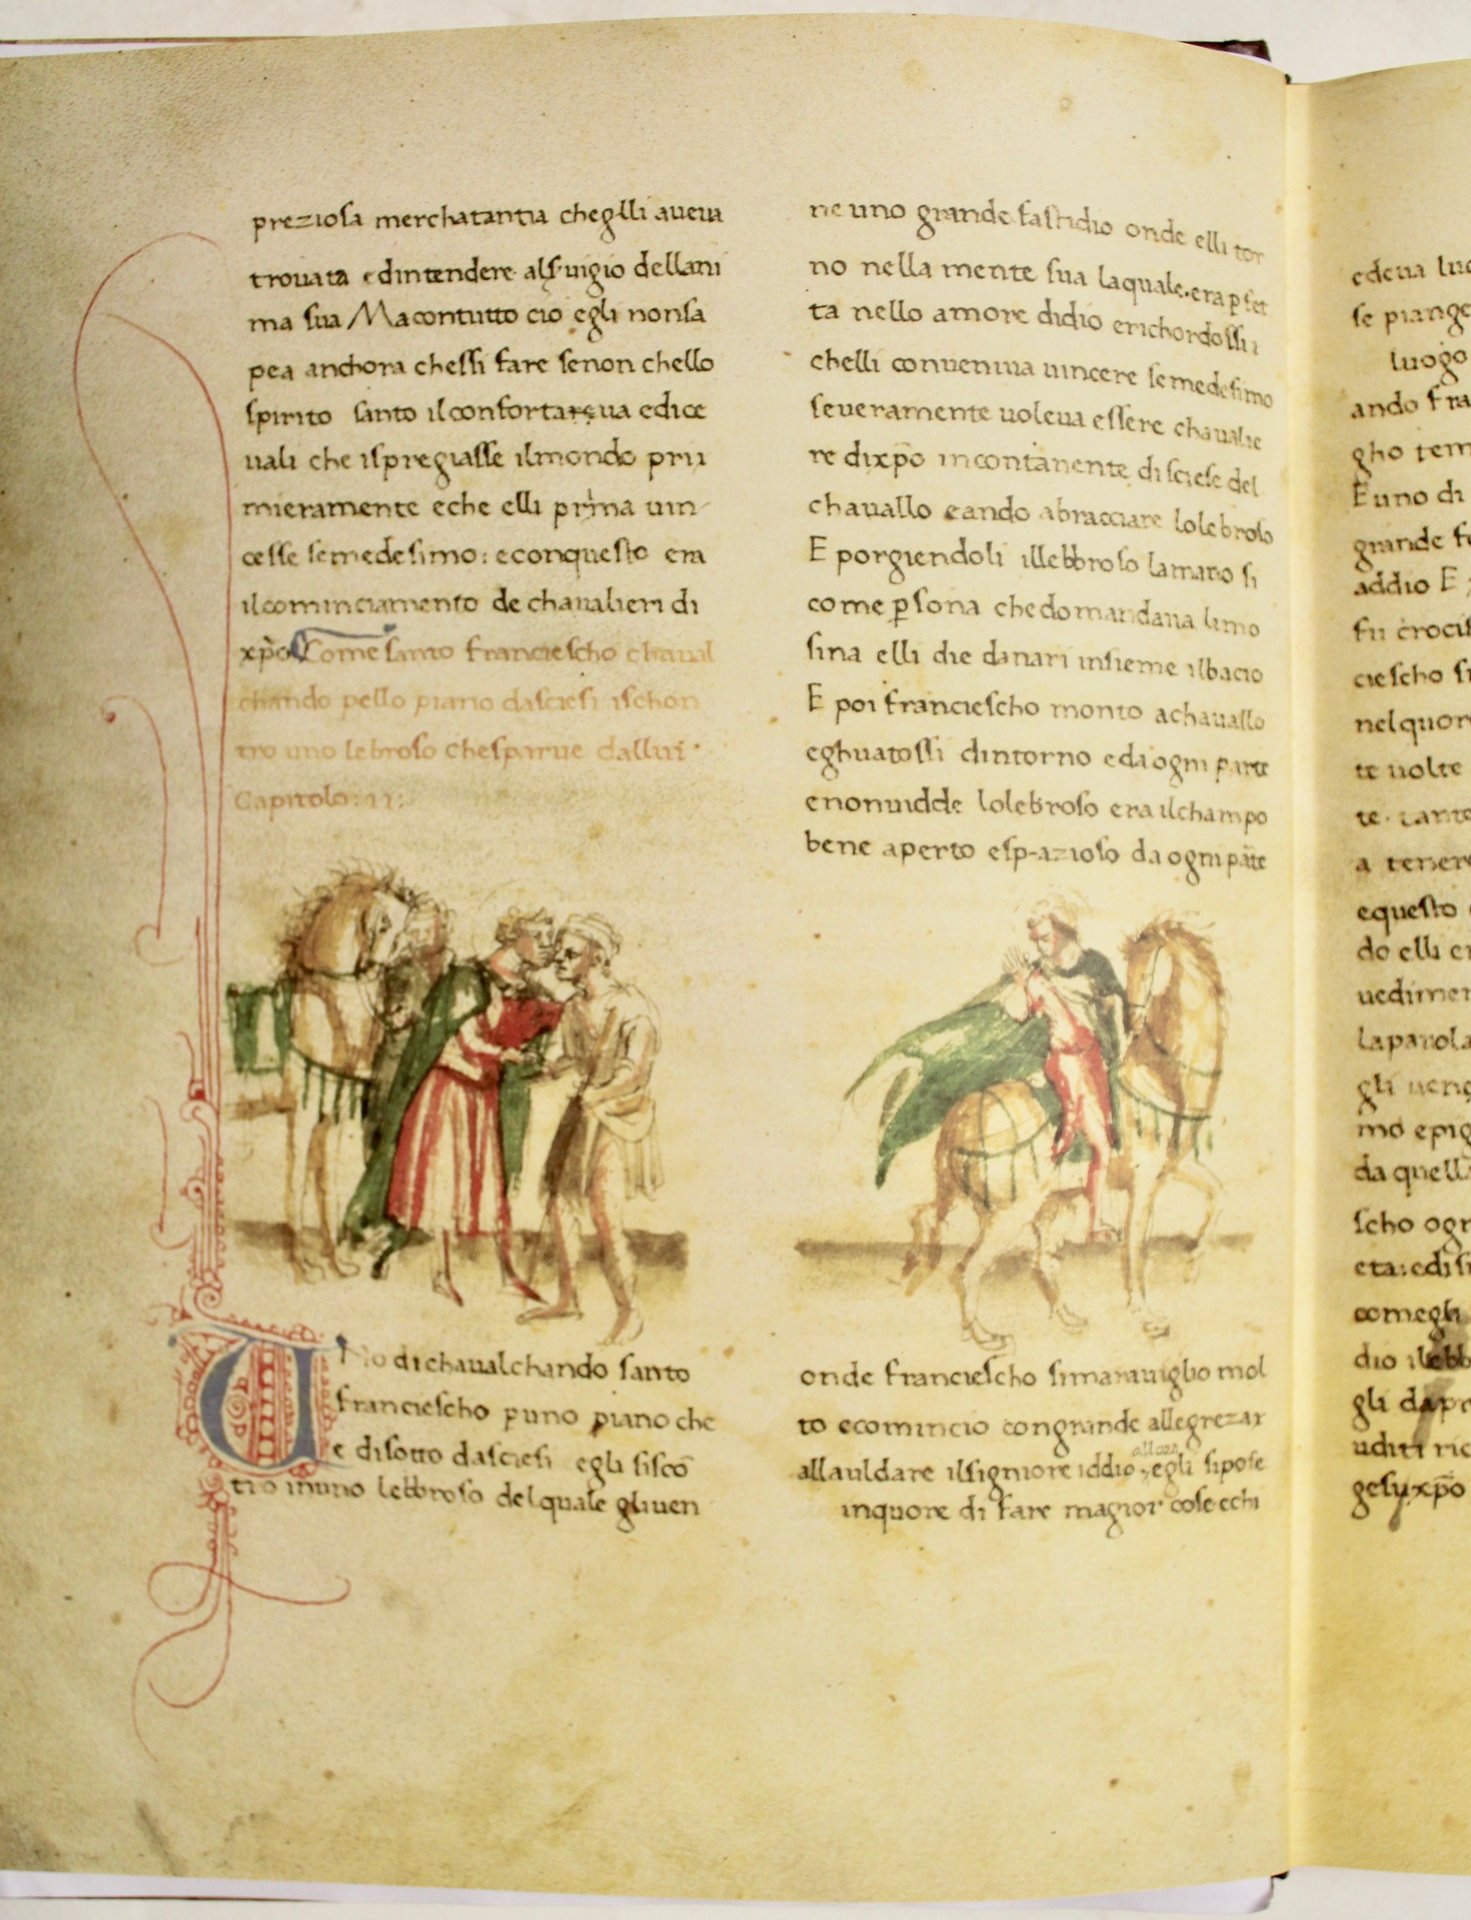 preziosa merchatantia chegelli aueua
trouata edintendere alseruigio dellani
ma sua Macontutto cio egli nonsa
pea anchora chessi fare senon chello
spirito santo ilconfortaua edice
uali che ispregiasse ilmondo prii
mieramente eche elli prima uin
cesse semedesimo: econquesto era
ilcominciamento de chaualieri di
xp̄o Come santo franciescho chaual
chando pello piano dasciesi ischon
tro uno lebroso chesparue dallui
Capitolo: 11:
dichaualchando santo
franciescho p uno piano che
e disotto dasciesi egli siscō
tro inuno lebbroso delquale gliuen
ne uno grande fastidio onde elli tor
no nella mente sua laquale era p̱fet
ta nello amore didio erichordossi
chelli conueniua uincere semedesimo
seueramente uoleua essere chaualie
re dixp̄o incontanente disciese del
chauallo eando abracciare lolebroso
E porgiendoli illebbroso lamano si
come p̱sona chedomandaua limo
sina elli die danari insieme ilbacio
E poi franciescho monto achauallo
eghuatossi dintorno edaogni parte
enonuidde lolebroso era ilchampo
bene aperto esp-azioso daogni parte
onde franciescho simarauiglio mol
to ecomincio congrande allegrezar
allauldare ilsigniore iddio egli sipose
inquore di fare magior cose echi
edeua
se piange
luogo
ando fra
gho tem
E uno di
grande
addio E
fu crocif
ciescho si
nelquor
te uolte
te. tante
a tener
equesto
do elli
uedimen
laparola
gli
mo epig
da quell
scho ogn
eta: edi
comegli
dio
gli
uditi
gesu xp̄o